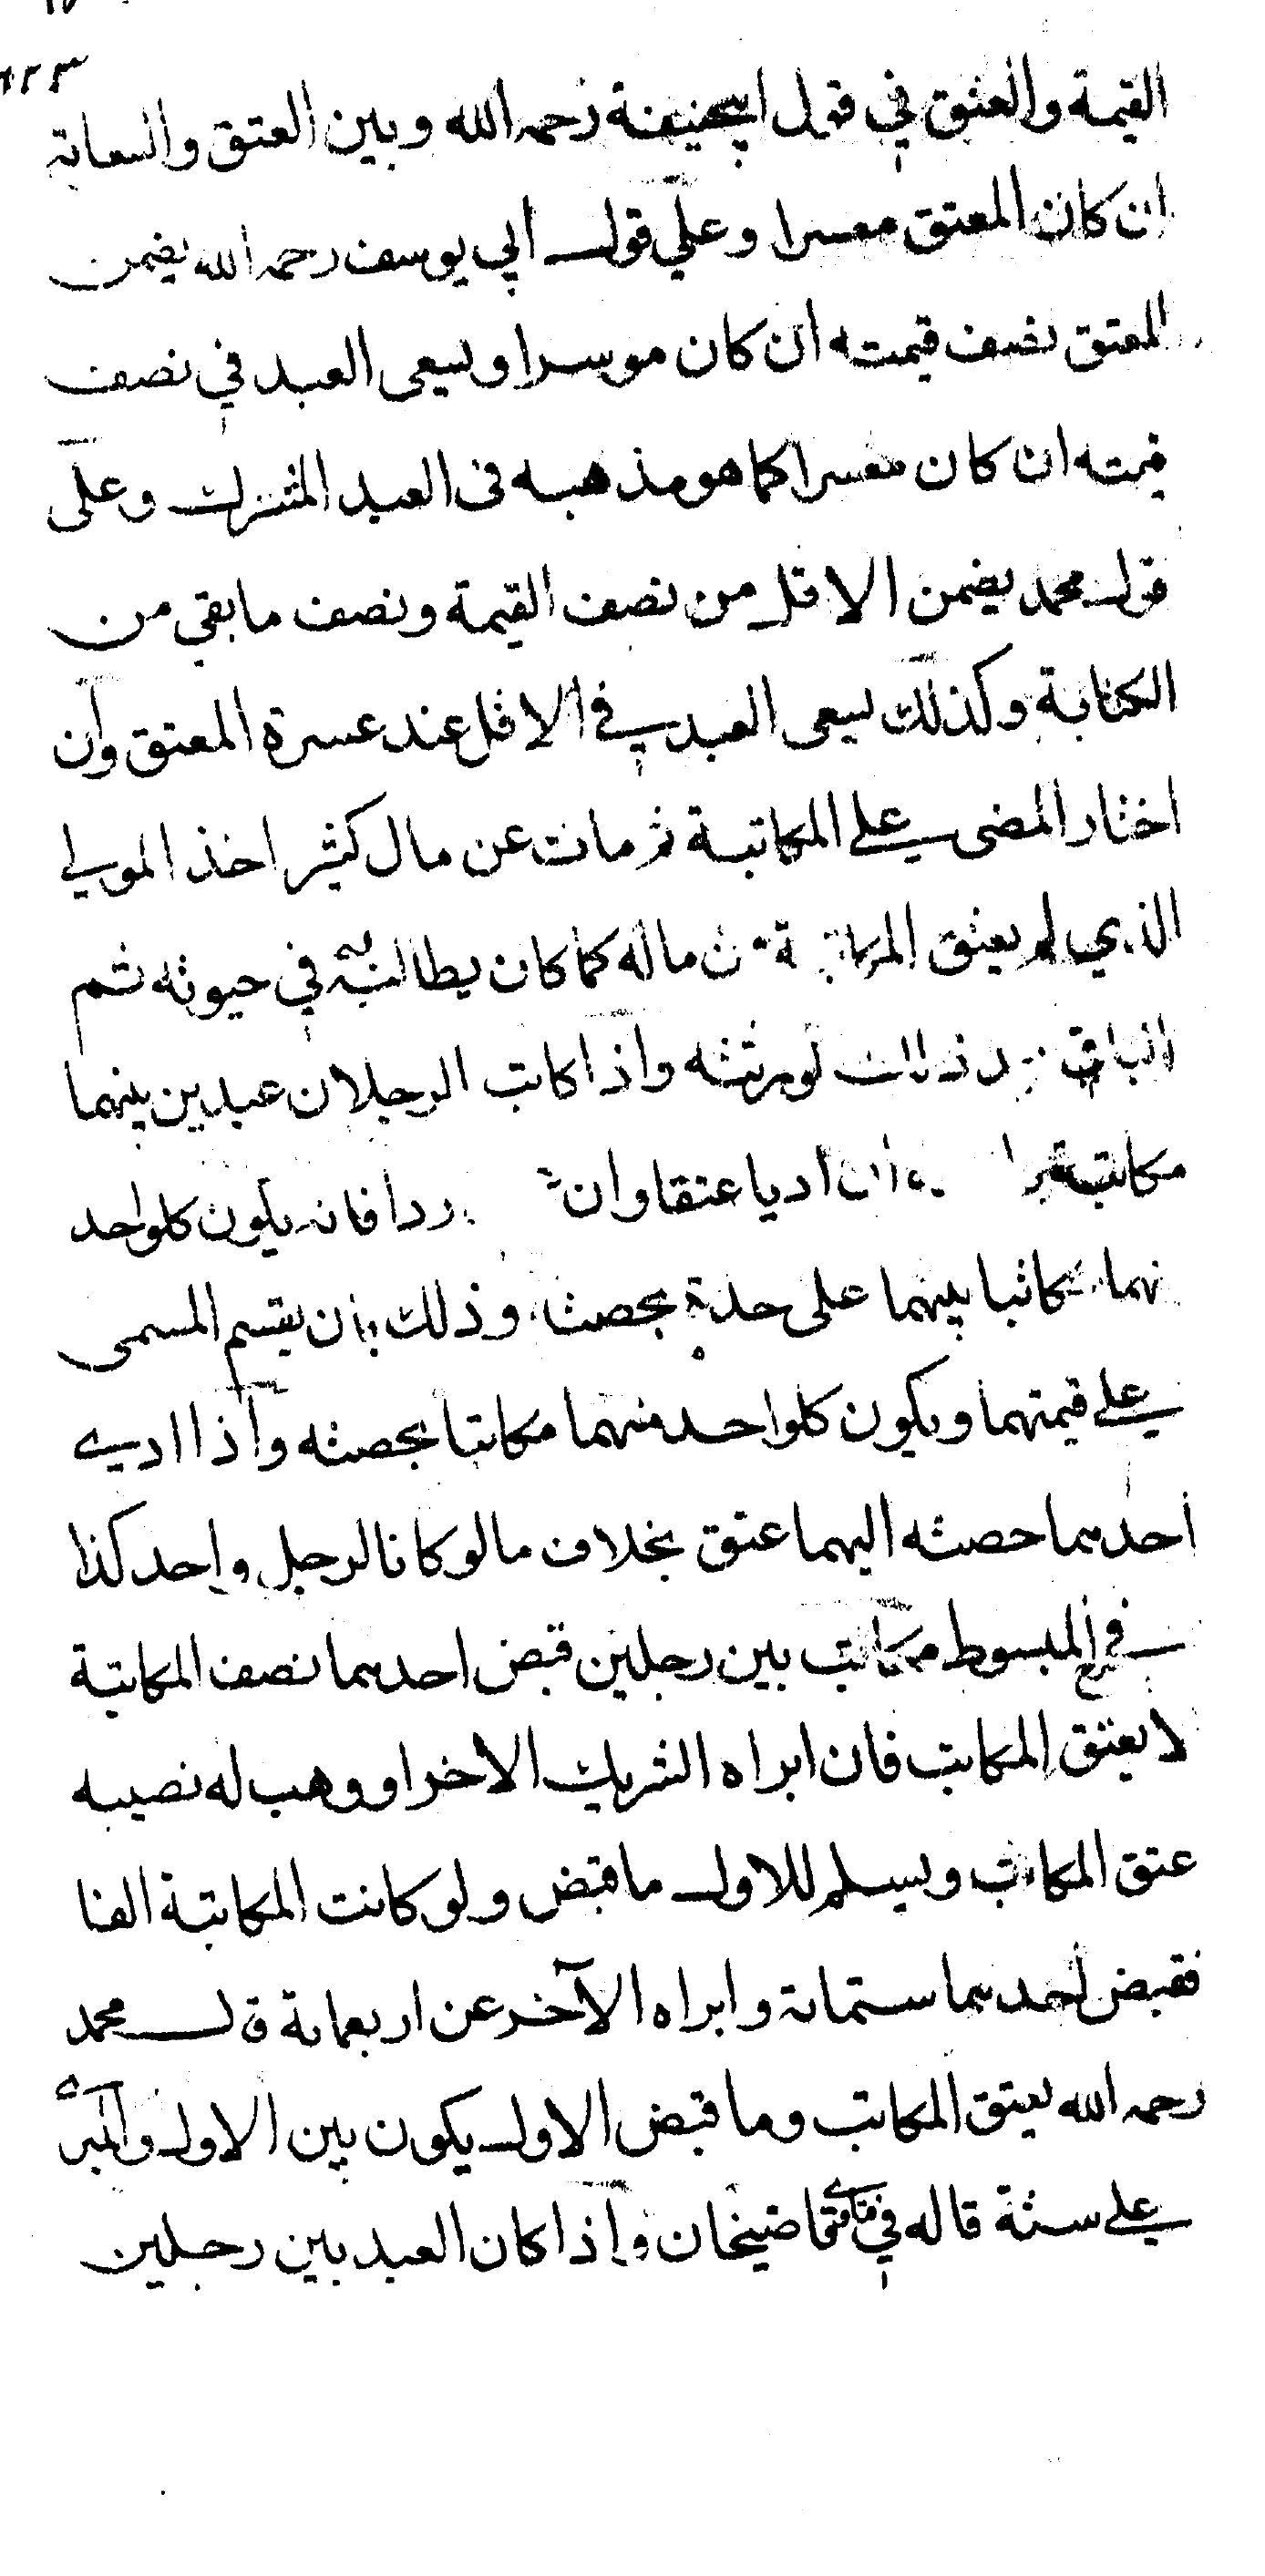 القيمة والعتق في قول ابيحنيفة رحمه الله وبين العتق والسعاية
ان كان المعتق معسرا وعلي قول ابي يوسف رحمه الله يضمن
المعتق نصف قيمته ان كان موسرا ويسعى العبد في نصف
قيمته ان كان معسرا كما هو مذهبه في العبد المشترك وعلى
قول محمد يضمن الاقل من نصف القيمة ونصف ما بقي من
الكتابة وكذلك يسعى العبد في الاقل عند عسرة المعتق وان
اختار المضى علي المكاتبة ثم مات عن مال كثير اخذ المولي
الذي لم يعتق ماله كما كان يطالبه في حيوته ثم
الباقي ذلك لورثته واذا كاتب الرجلان عبدين بينهما
مكاتبة ان اديا عتقا وان ردا فانه يكون كلواحد
منهما مكاتبا بينهما على حدة بحصته وذلك بان يقسم المسمى
علي قيمتهما ويكون كلواحد منهما مكاتبا بحصته واذا ادي
احدهما حصته اليهما عتق بخلاف ما لو كانا لرجل واحد كذا
في المبسوط فرع مكاتب بين رجلين قبض احدهما نصف المكاتبة
لا يعتق المكاتب فان ابراه الشريك الاخر او وهب له نصيبه
عتق المكاتب ويسلم للاول ما قبض ولو كانت المكاتبة الفا
فقبض احدهما ستماية وابراه الآخر عن اربعماية قال محمد
رحمه الله يعتق المكاتب وما قبض الاول يكون بين الاول والمبرئ
علي ستة قاله في فتاوي قاضيخان واذا كان العبد بين رجلين